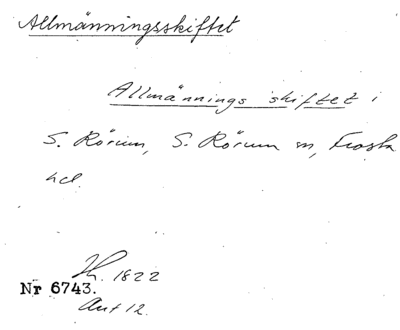 Allmänningsskiftet
Allmännings skiftet i
S. Rörum, S. Rörum sn, Frosta
hd.
1822
Nr 6743.
Ant 12.